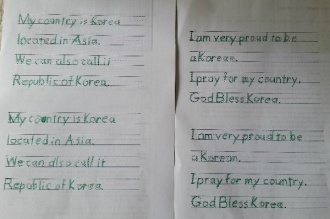 My country is Korea
located in Asia.
We can also call it
Republic of Korea.
My country is Korea
located in Asia.
We can also call it
Republic of Korea.
I am very proud to be
a Korean.
I pray for my country.
God Bless Korea.
I am very proud to be
a Korean.
I pray for my country.
God Bless Korea.